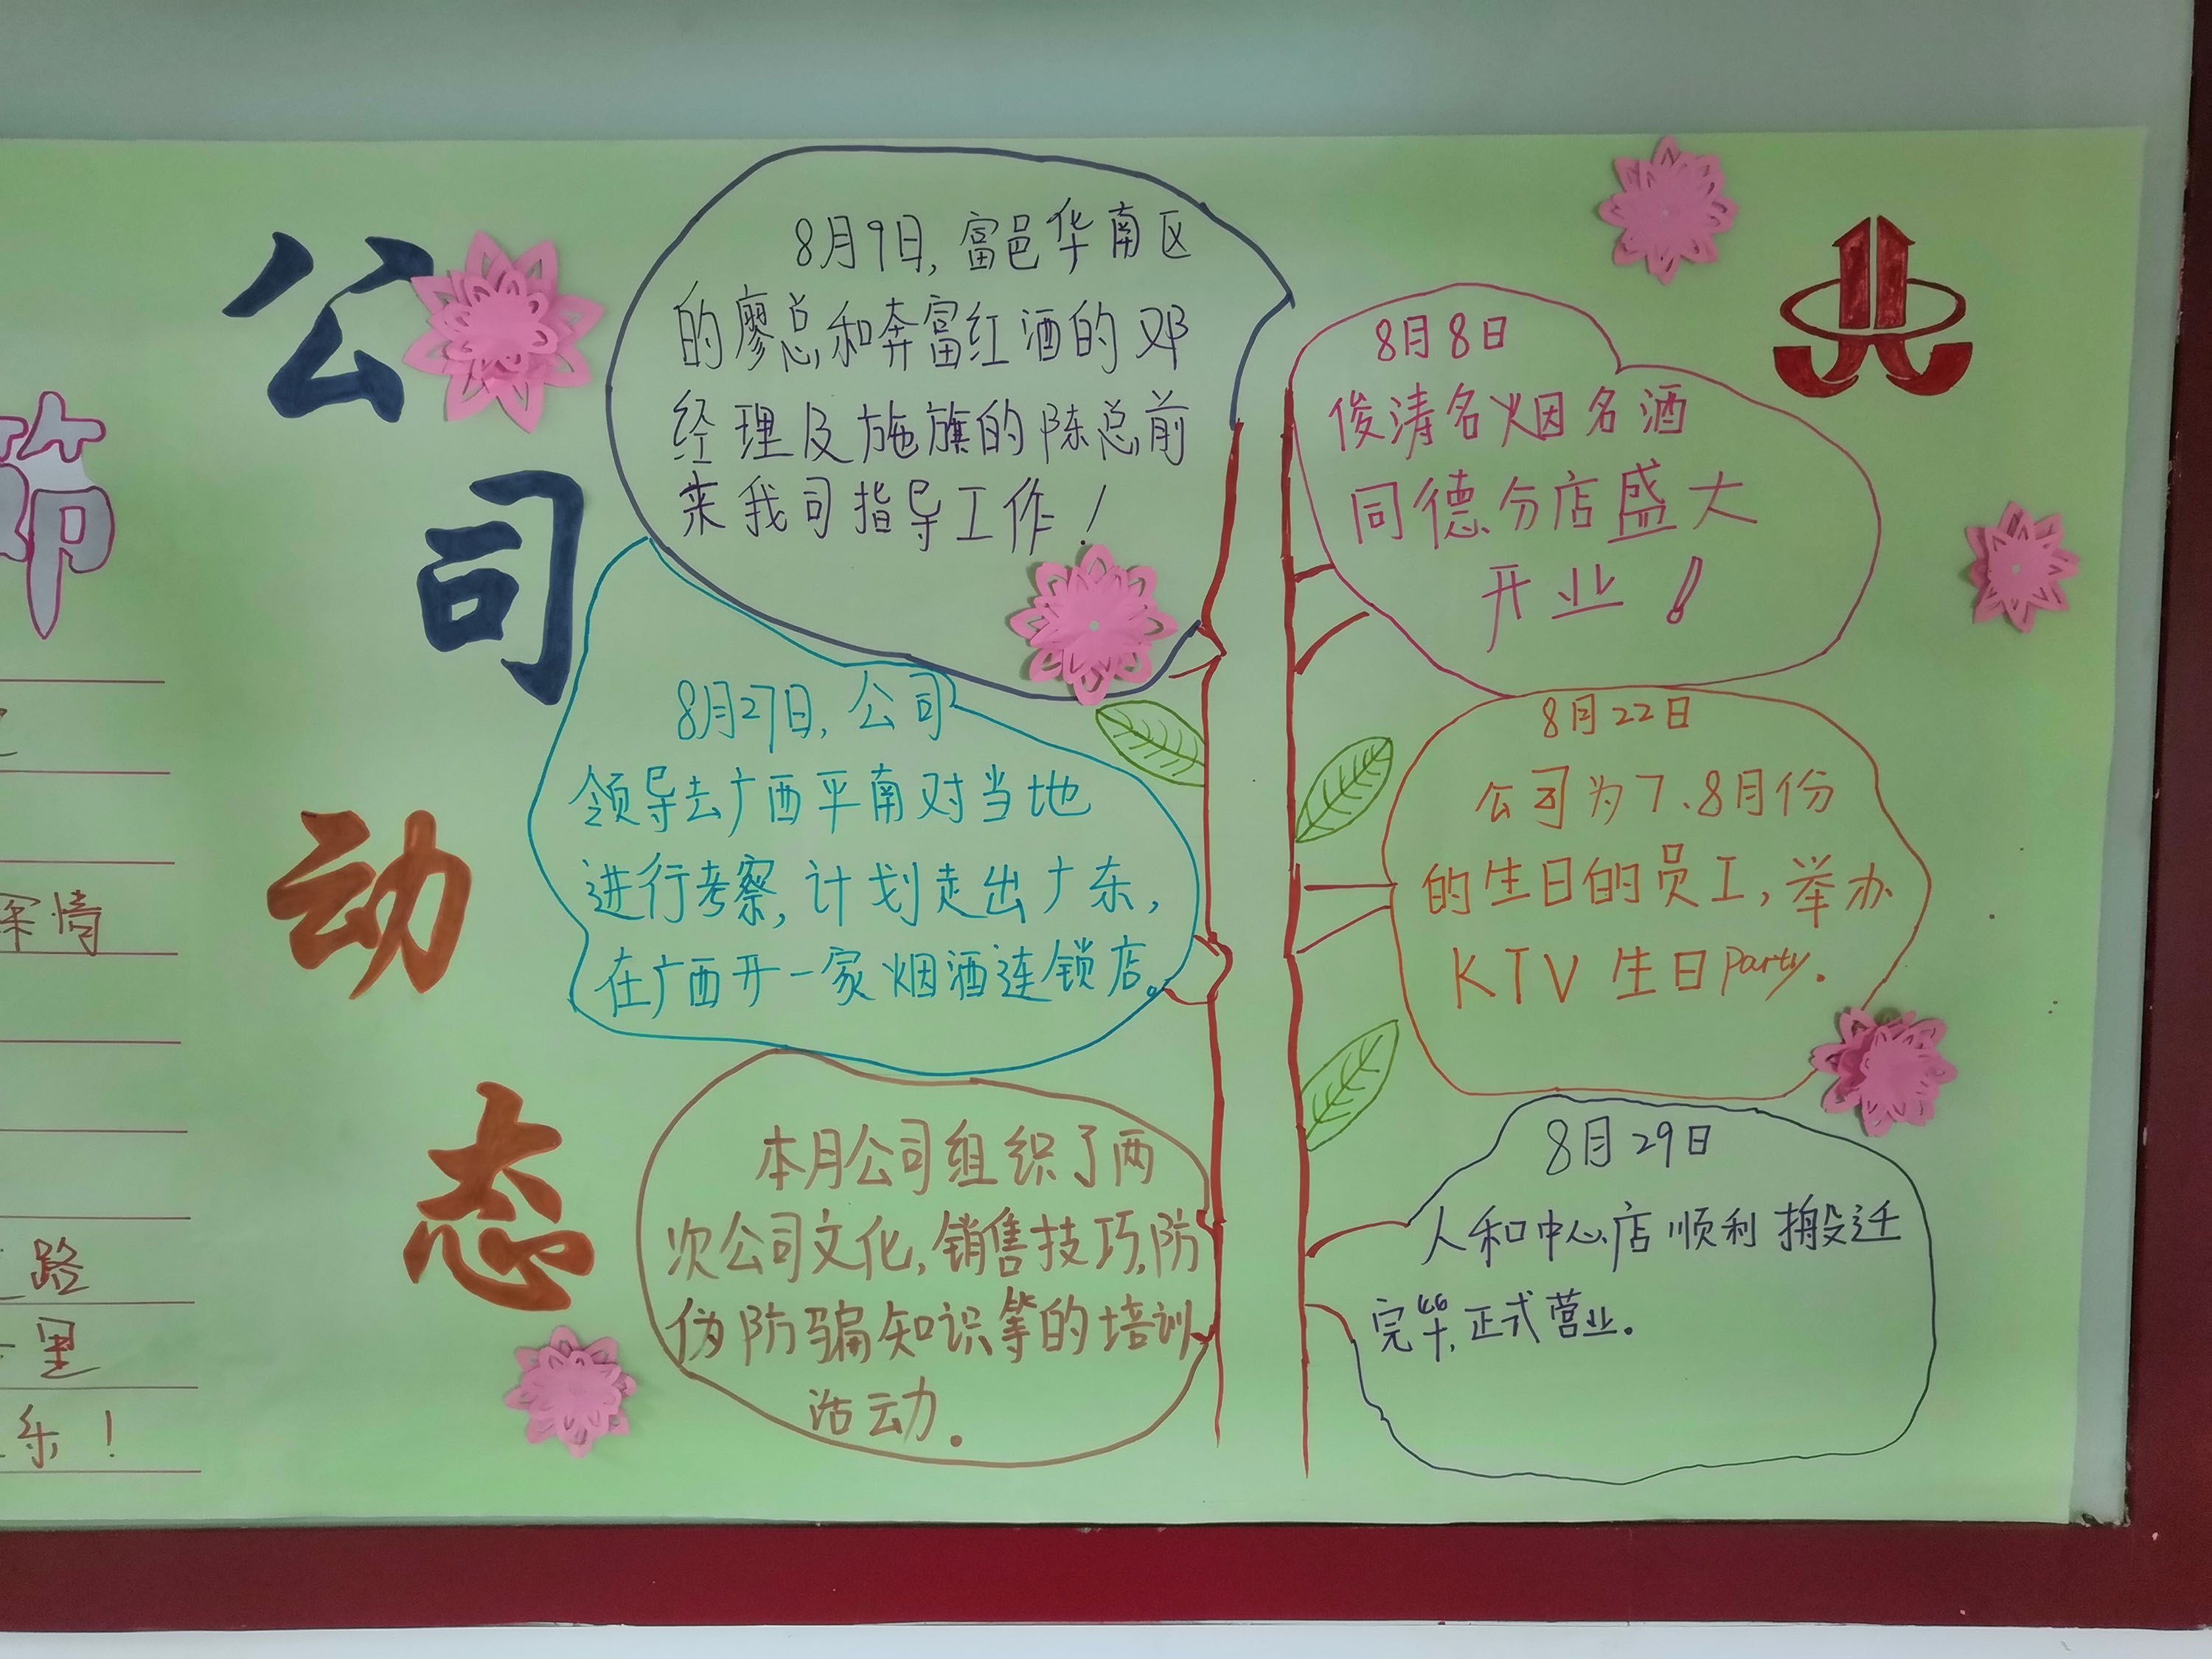 节
深情
路
里
乐！
公
司
动
态
8月9日,富邑华南区
的廖总和奔富红酒的邓
经理及施旗的陈总前
来我司指导工作！
8月27日,公司
领导去广西平南对当地
进行考察,计划走出广东,
在广西开一家烟酒连锁店。
本月公司组织了两
次公司文化,销售技巧,防
伪防骗知识等的培训
活动。
8月8日
俊涛名烟名酒
同德分店盛大
开业！
8月22日
公司为7、8月份
的生日的员工,举办
KTV生日Party.
8月29日
人和中心店顺利搬迁
完毕,正式营业。